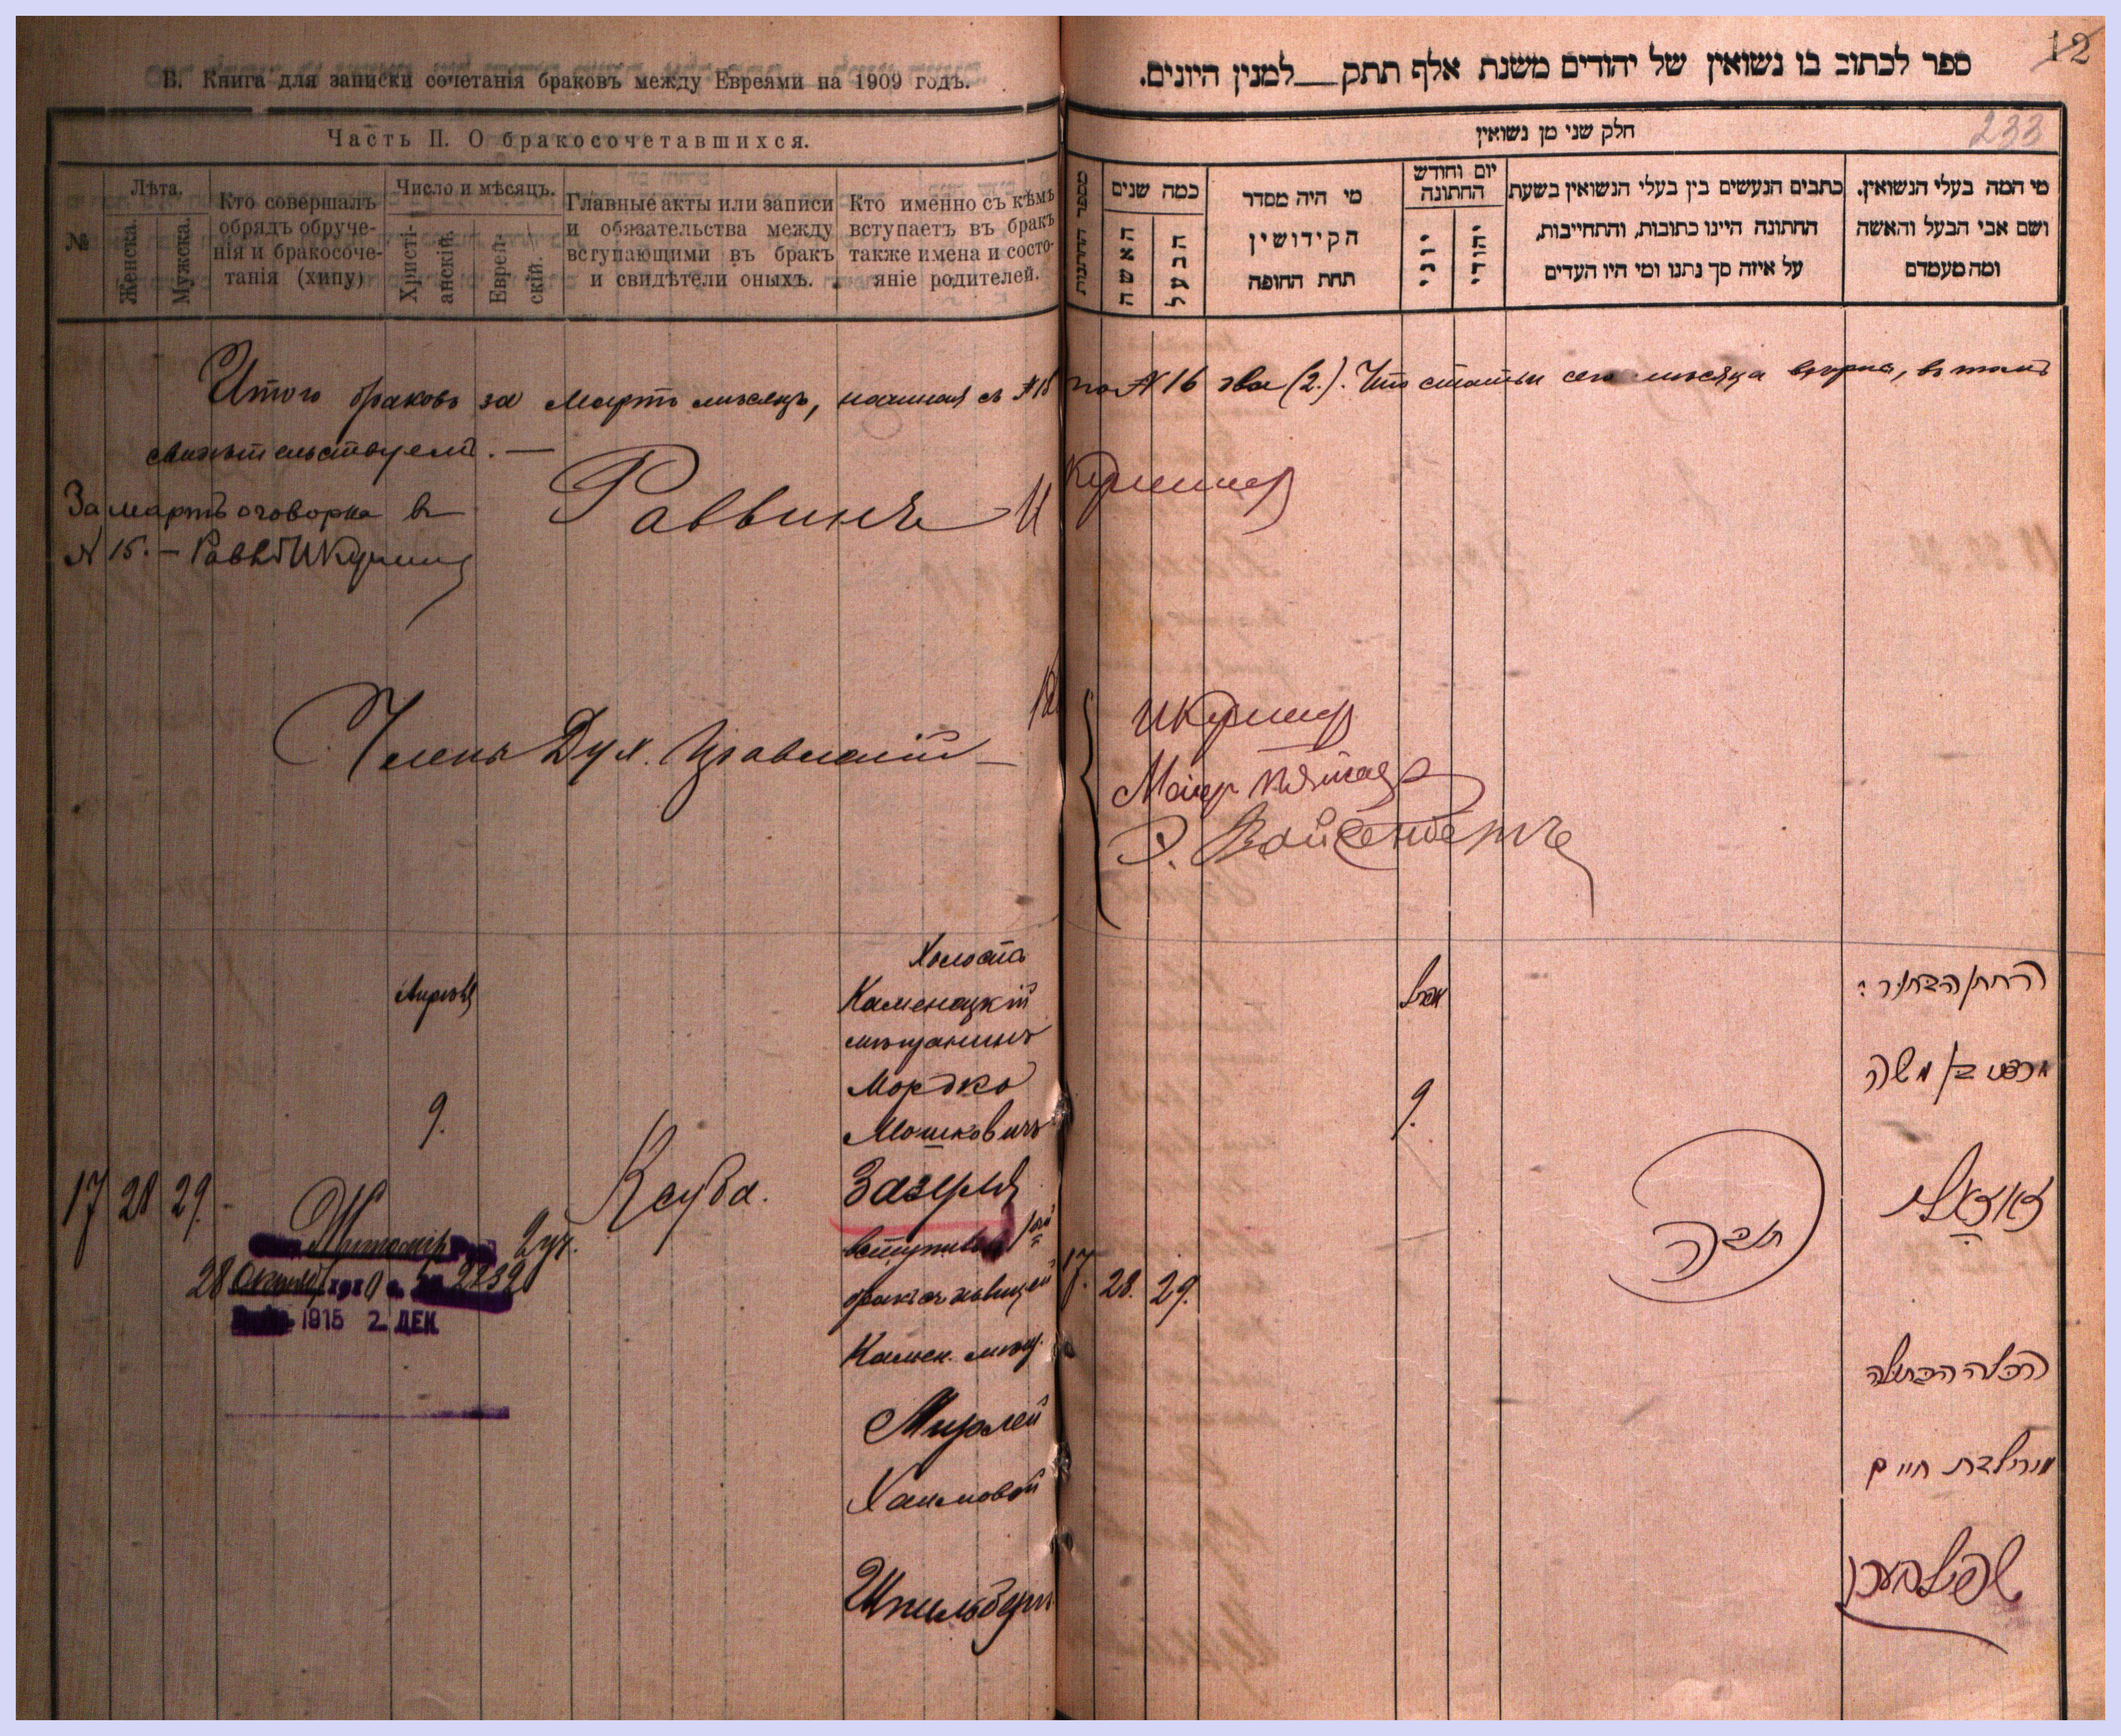 В. Книга для записки сочетанія браковъ между Евреями на 1909 годъ.
Часть II. О бракосочетавшихся.
№
Лѣта.
Женска.
Мужска.
Кто совершалъ
обрядъ обруче-
нія и бракосоче-
танія (хипу)
Число и мѣсяцъ.
Христі-
анскій.
Еврей-
скій.
Главные акты или записи
и обязательства между
вступающими въ бракъ
и свидѣтели оныхъ.
Кто именно съ кѣмъ
вступаетъ въ бракъ
также имена и состо-
яніе родителей.
12
ספר לכתוב בו נשואין של יהודים משנת אלף תתק למנין היונים.
חלק שני מן נשואין
233
מספר החתונות
כמה שנים
האשה
הבעל
מי היה מסדר
הקידושין
תחת החופה
יום וחודש
החתונה
יוני
יהודי
כתבים הנעשים בין בעלי הנשואין בשעת
החתונה היינו כתובות, והתחייבות,
על איזה סך נתנו ומי היו העדים
מי המה בעלי הנשואין,
ושם אבי הבעל והאשה
ומה מעמדם
Итого браковъ за мартъ мѣсяцъ, начиная съ №15 по №16 два (2.). Что статьи сего мѣсяца вѣрны, въ томъ
свидѣтельствуемъ. —
Раввинъ
За мартъ оговорка въ
№ 15. —
Члены Дух. Правленія
Вайсенбергъ
Холостъ
Апрѣль
Каменецкій
мѣщанинъ
Мордко
9.
Мошковичъ
17 28 29.
Ксуба.
Зазуля
вступилъ въ 1ый
бракъ съ дѣвицей
Камен. мѣщ.
Мирлей
Хаимовой
Шпильбергъ
Житоміръ 2 уч.
28 Октября 1910 г. № 2232
1915 2. ДЕК.
17. 28. 29.
אפריל
9.
כתובה
החתן הבחור ר׳
מרדכי בן משה
זאזולי
הכלה הבתולה
מירל בת חיים
שפילבערג